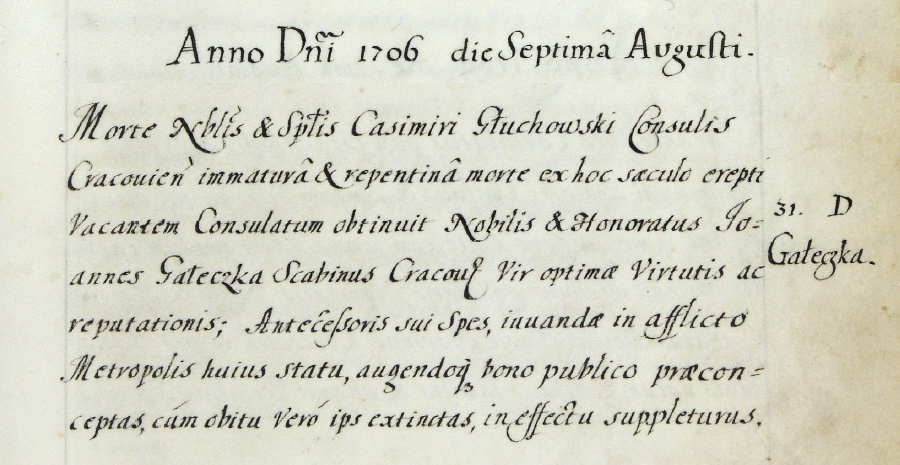 Anno Dñi 1706 die Septimâ Augusti.
Morte Nblis & Spłis Casimiri Głuchowski Consulis
Cracouien̄ immaturâ & repentinâ morte ex hoc sæculo erepti
Vacantem Consulatum obtinuit Nobilis & Honoratus Jo=
annes Gałeczka Scabinus Cracou Vir optimæ Virtutis ac
reputationis; Antecessoris sui Spes, iuuandæ in afflicto
Metropolis huius statu, augendoq̃ bono publico præcon=
ceptas, cúm obitu Veró ips extinctas, in effectu suppleturus.
31. D
Gałeczka.